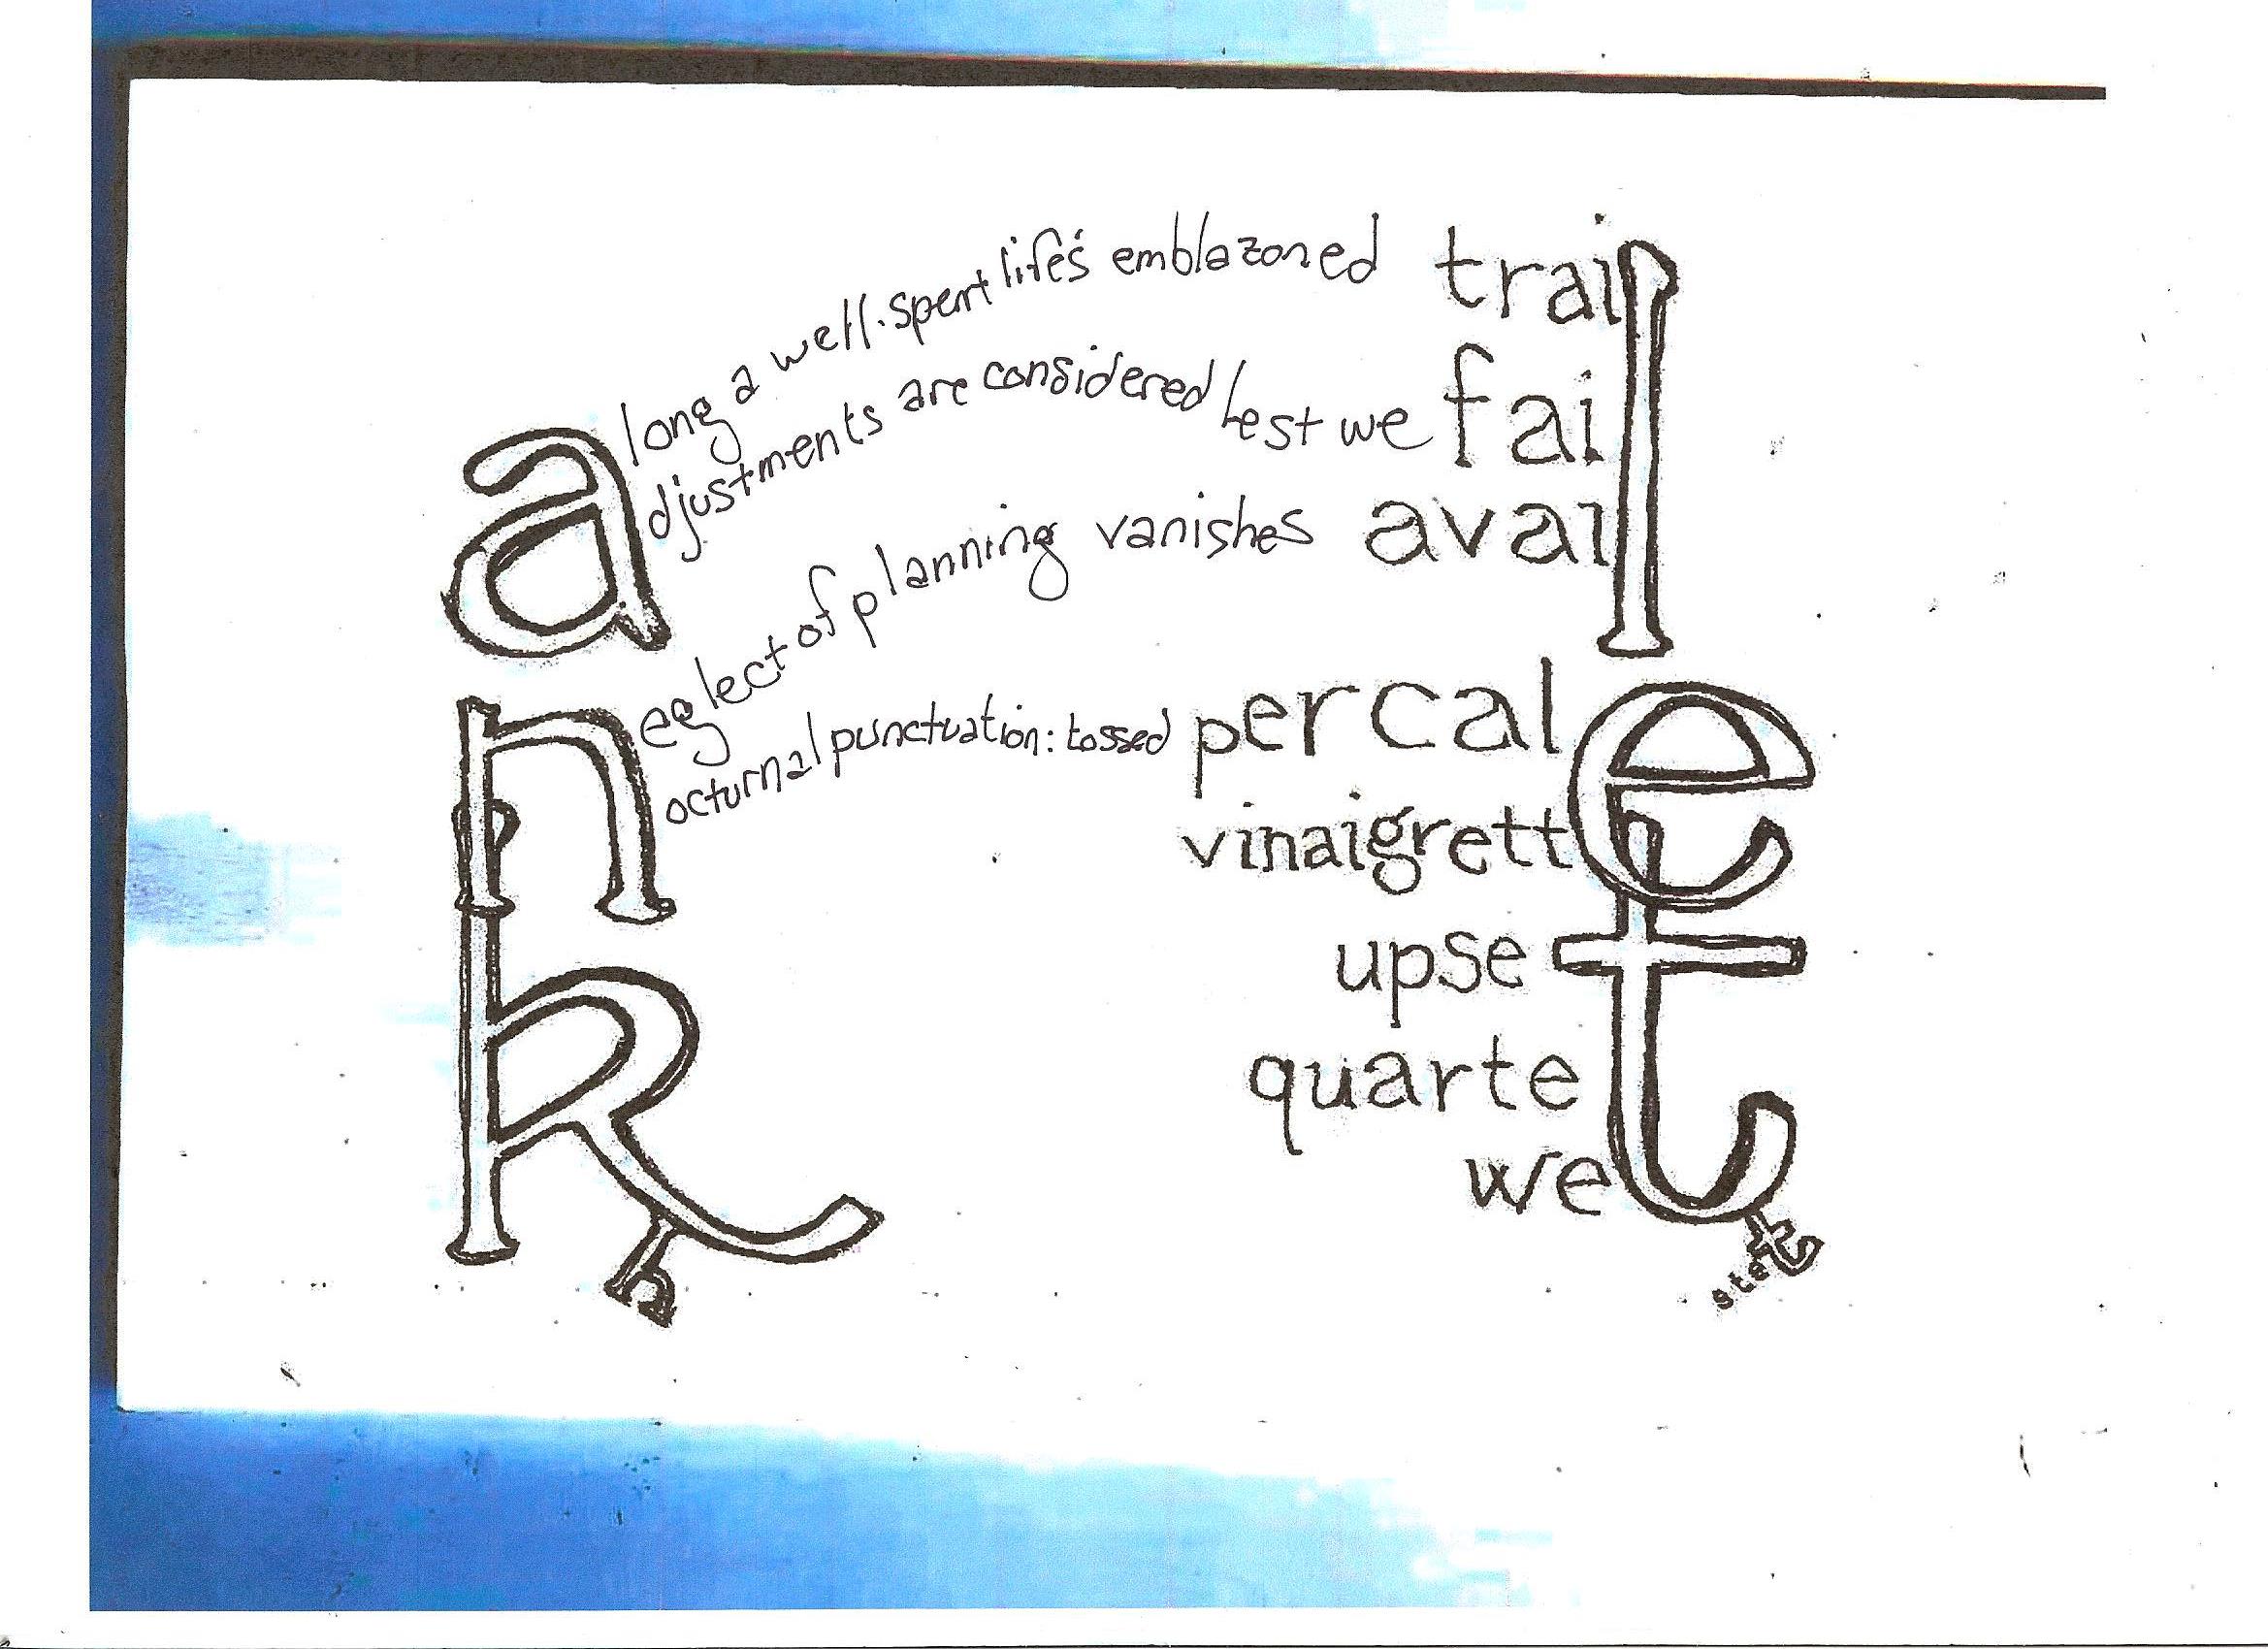 along a well-spent life's emblazoned trail
adjustments are considered lest we fail
neglect of planning vanishes avail
nocturnal punctuation: tossed percale
vinaigrette
upset
quartet
wet
k
h
stet